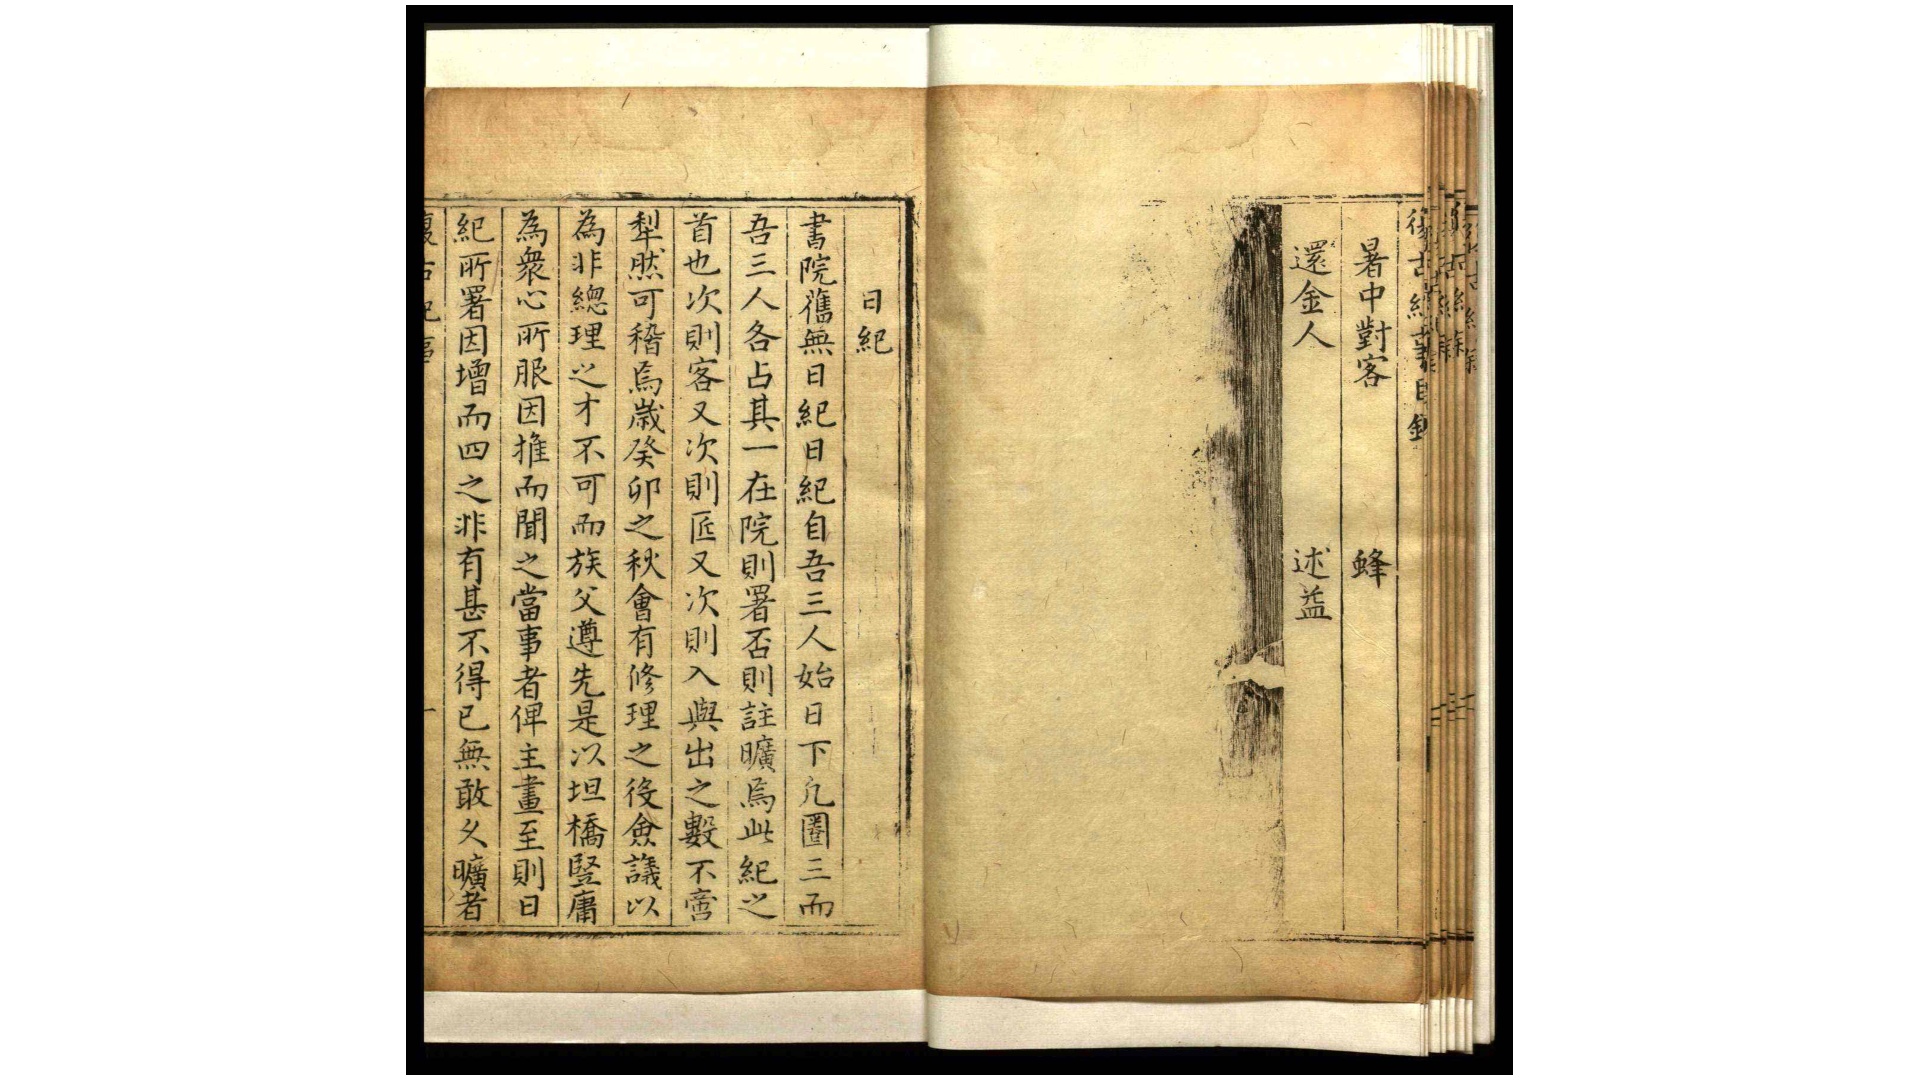 復古紀事目錄
暑中對客　蜂
還金人　述益
日紀
書院舊無日紀日紀自吾三人始日下凡圈三而
吾三人各占其一在院則署否則註曠焉此紀之
首也次則客又次則匠又次則入與出之數不啻
犁然可稽焉歲癸卯之秋會有修理之役僉議以
為非總理之才不可而族父遵先是以坦橋豎庸
為衆心所服因推而聞之當事者俾主畫至則日
紀所署因增而四之非有甚不得已無敢久曠者
復古紀事　一